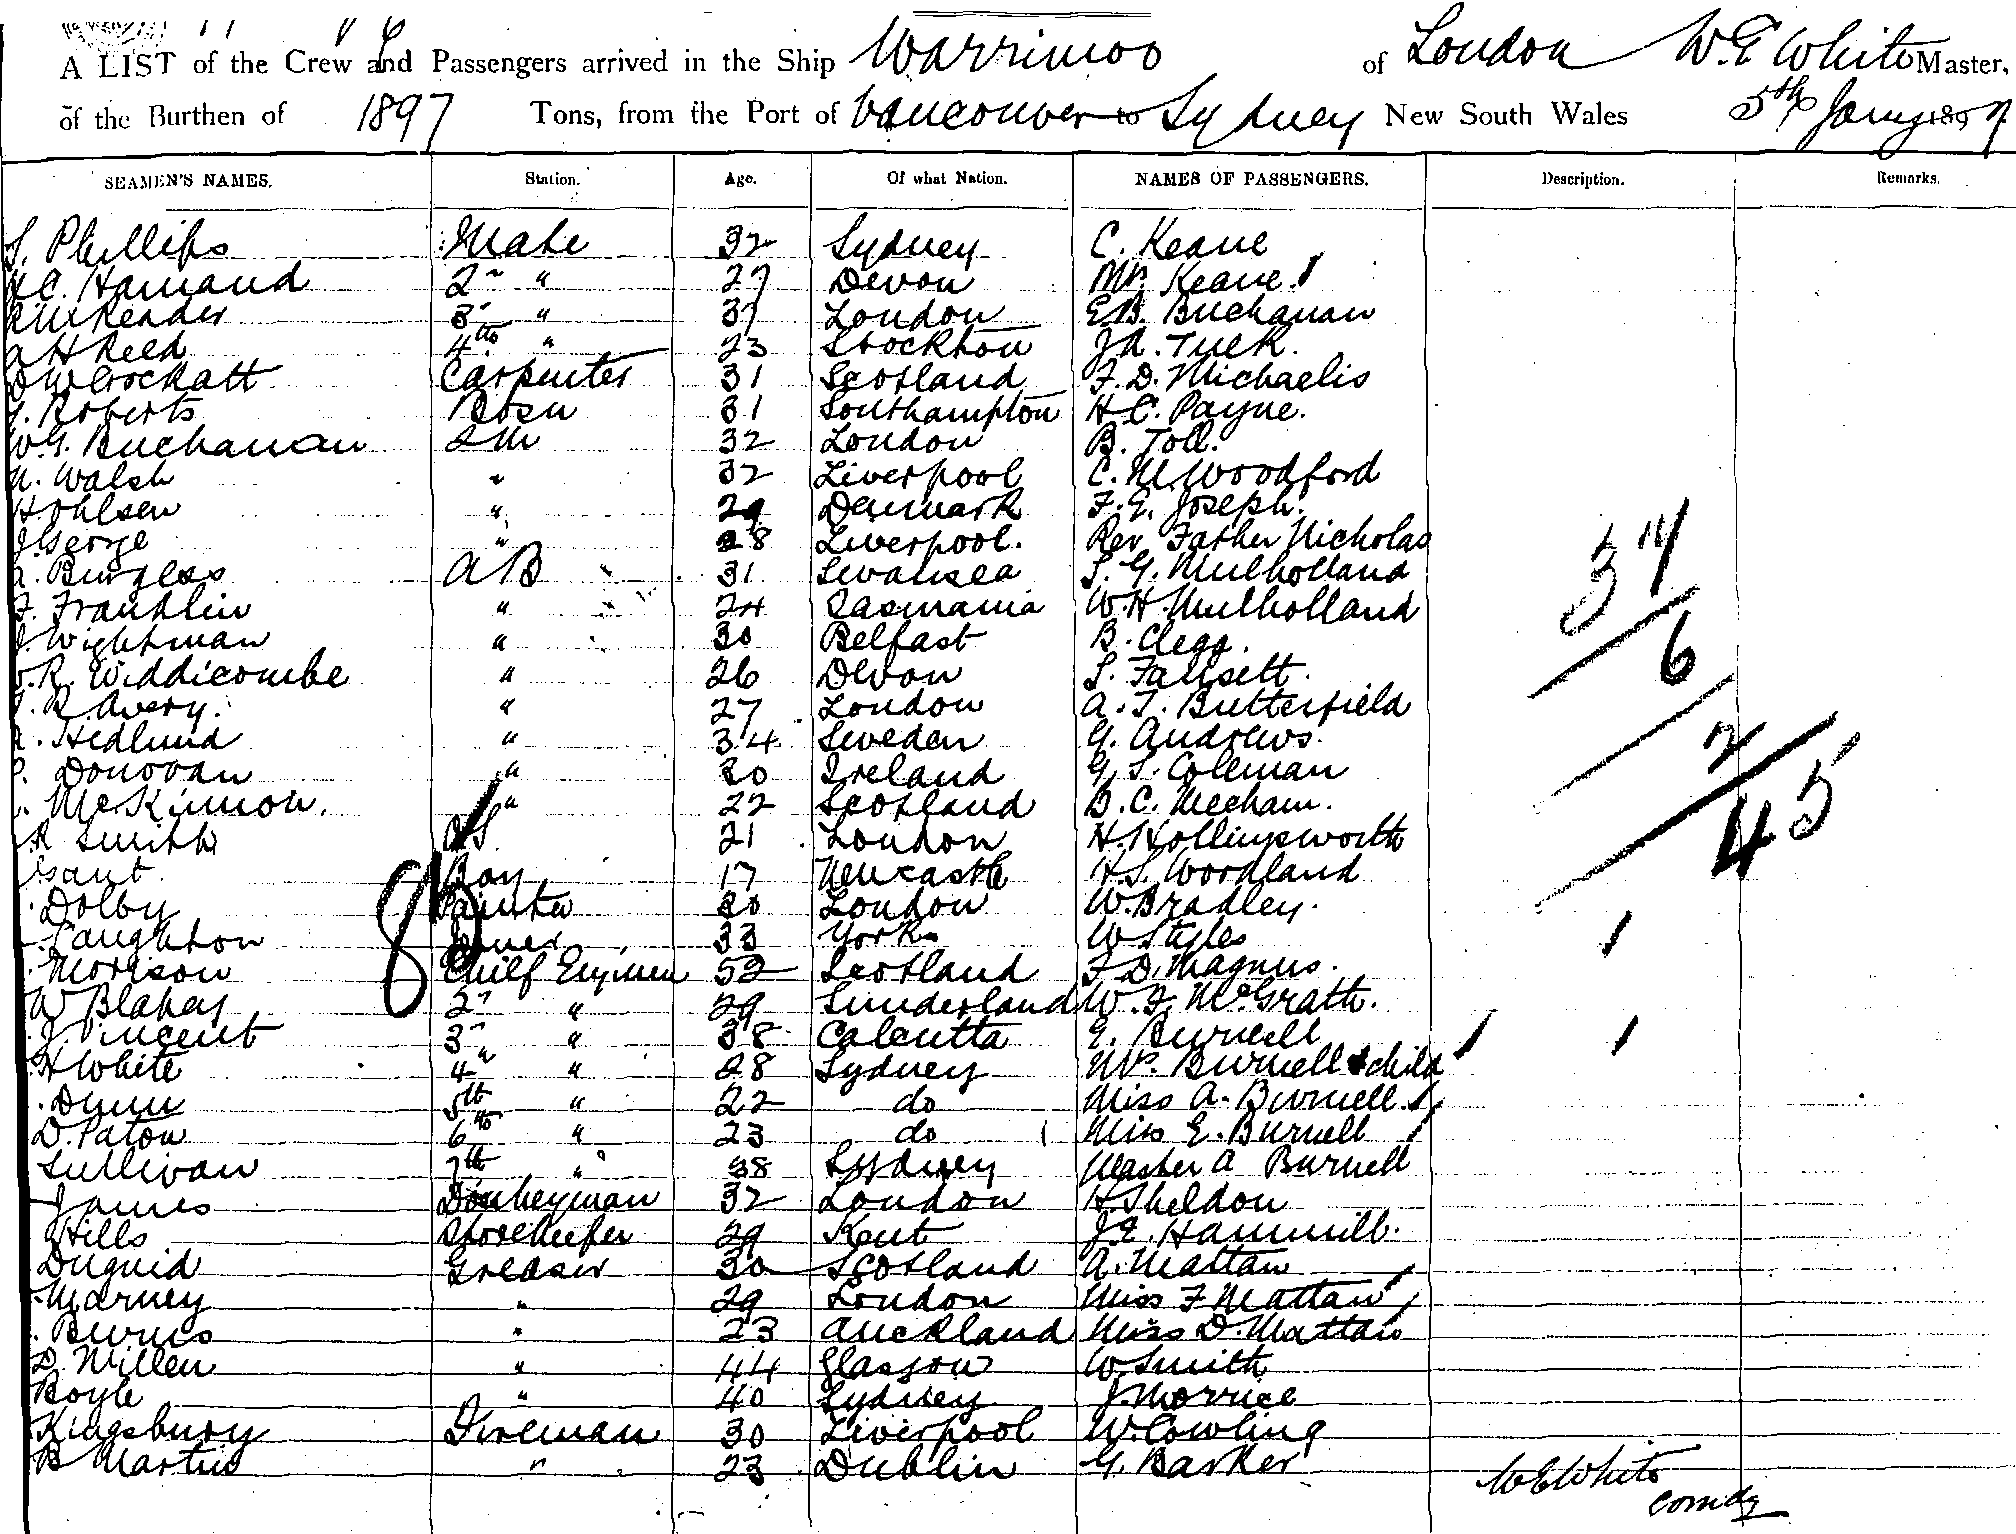 A LIST of the Crew and Passengers arrived in the Ship Warrimoo of London W. E. White Master,
of the Burthen of 1897 Tons, from the Port of Vancouver to Sydney New South Wales 5th Jany 1897
SEAMEN'S NAMES. Station. Age. Of what Nation. NAMES OF PASSENGERS. Description. Remarks.
S. Phillips Mate 32 Sydney C. Keane
H.C. Hamand 2nd " 27 Devon Mrs. Keane
Reader 3rd " 37 London E.B. Buchanan
A H Reed 4th " 23 Stockton J.A. Tuck.
D W Crockatt Carpenter 31 Scotland F. D. Michaelis
J. Roberts Bosn 31 Southampton H.C. Payne.
W.G. Buchanan 32 London B. Toll.
Walsh " 32 Liverpool C. M. Woodford
H. Ohlsen " 29 Denmark F. E. Joseph.
J George " 28 Liverpool. Rev Father Nicholas
A. Burgess AB 31 Swansea S. G. Mulholland
F. Franklin " 24 Tasmania W. H. Mulholland
J. Wightman " 30 Belfast B. Clegg.
R. Widdicombe " 26 Devon S. Fawsett.
R. Avery. " 27 London A. T. Butterfield
Hedlund " 34 Sweden G. Andrews.
Donovan " 30 Ireland G. S. Coleman
McKinnon. " 22 Scotland D. C. Mecham.
R Smith OS. 21 London H. Hollingsworth
Gaut Boy 17 Newcastle H.S. Woodland
Dolby Painter 30 London W. Bradley.
Laughton Joiner 33 Yorks W Styles
Morison Chief Engineer 52 Scotland F D. Magnus.
W Blakey 2nd " 29 Sunderland W. F. McGrath.
J. Vincent 3rd " 38 Calcutta E. Burnell
H White 4th " 28 Sydney Mrs. Burnell & child
Dunn 5th " 22 do Miss A. Burnell
D. Paton 6th " 23 do Miss E. Burnell
Sullivan 7th " 38 Sydney Master A Burnell
James Donkeyman 32 London H. Sheldon
Hills Storekeeper 29 Kent J. E. Hammill.
Duguid Greaser 30 Scotland A. Mattan
Marney " 29 London Miss F Mattan
Burns " 23 Auckland Miss D. Mattan
D. Millen " 44 Glasgow W Smith
Boyle " 40 Sydney J. Morrice
Kingsbury Fireman 30 Liverpool W. Cowling
B Martin " 23 Dublin G. Barker
34
6
2
45
8
W E White
Comdg